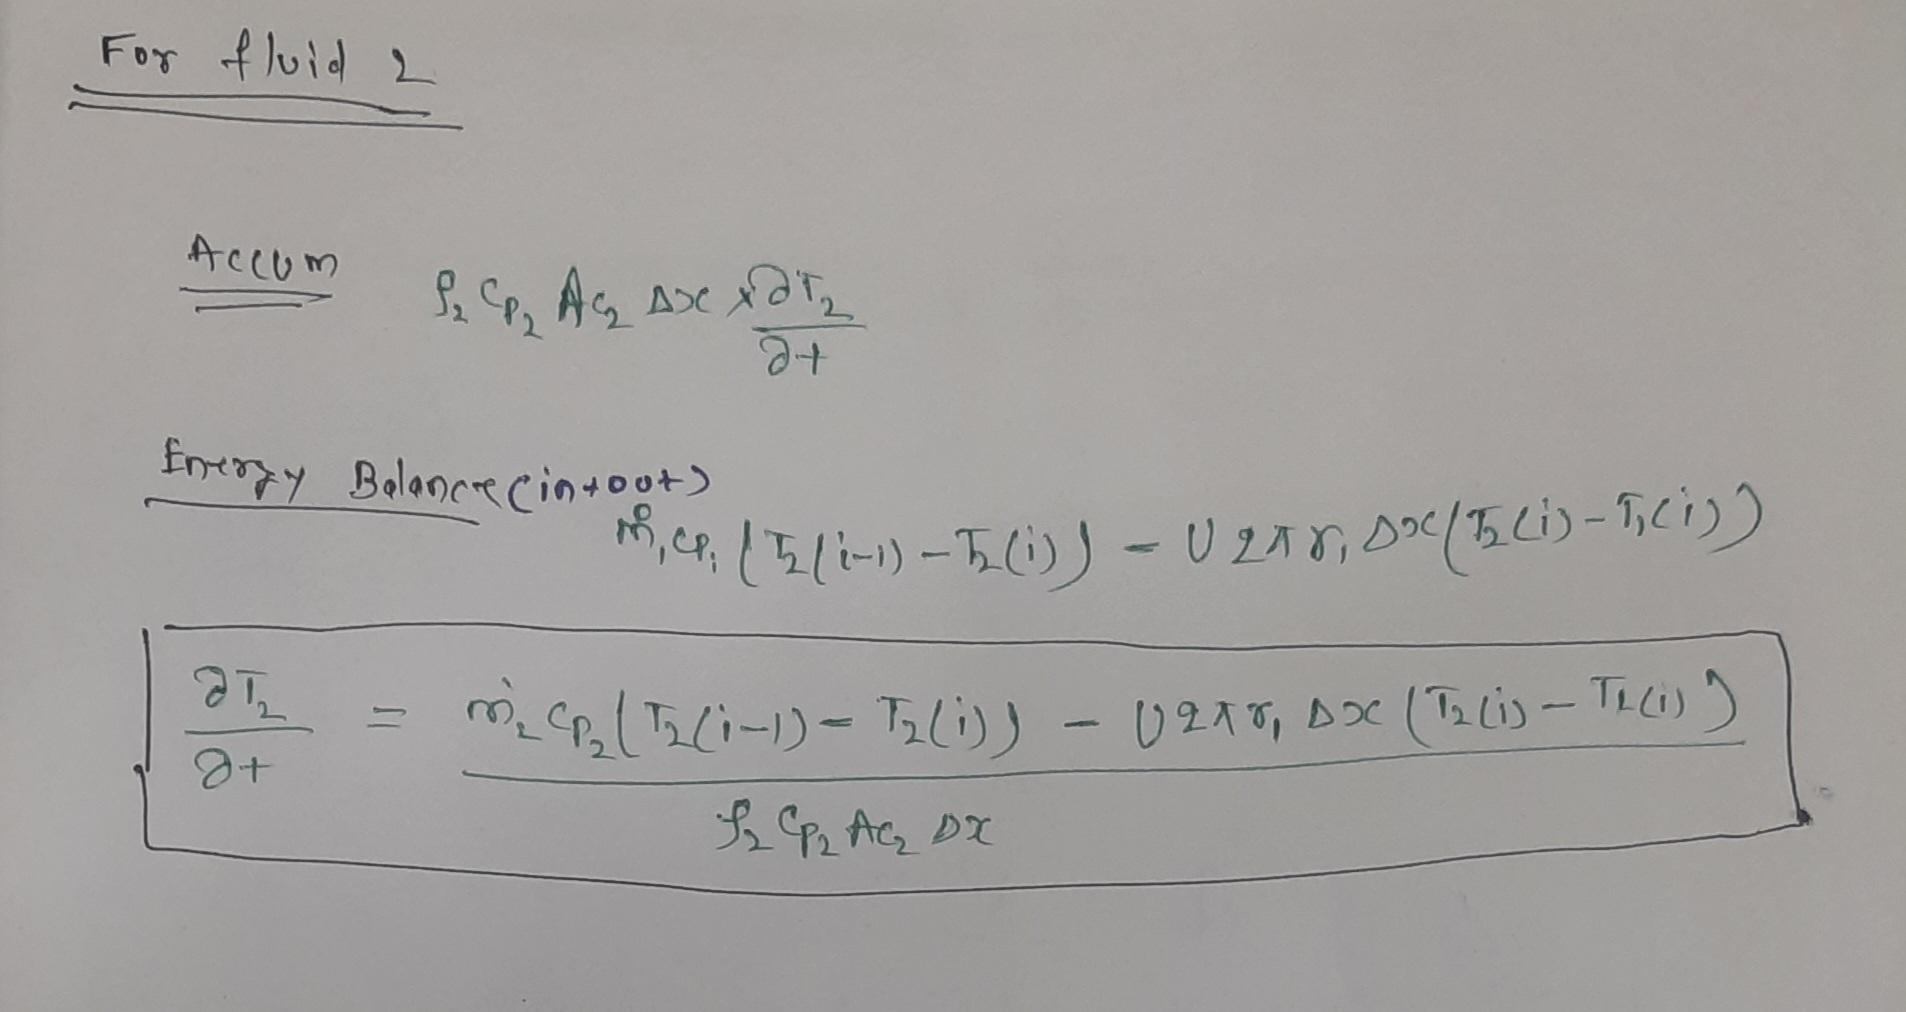 For fluid 2
Accum ρ₂ Cp₂ Ac₂ Δx × ∂T₂/∂t
Energy Balance (in+out)
ṁ₁ Cp₁ (T₂(i-1) - T₂(i)) - U 2π r₁ Δx (T₂(i) - T₁(i))
∂T₂/∂t = ṁ₂ Cp₂ (T₂(i-1) - T₂(i)) - U 2π r₁ Δx (T₂(i) - T₁(i))
ρ₂ Cp₂ Ac₂ Δx